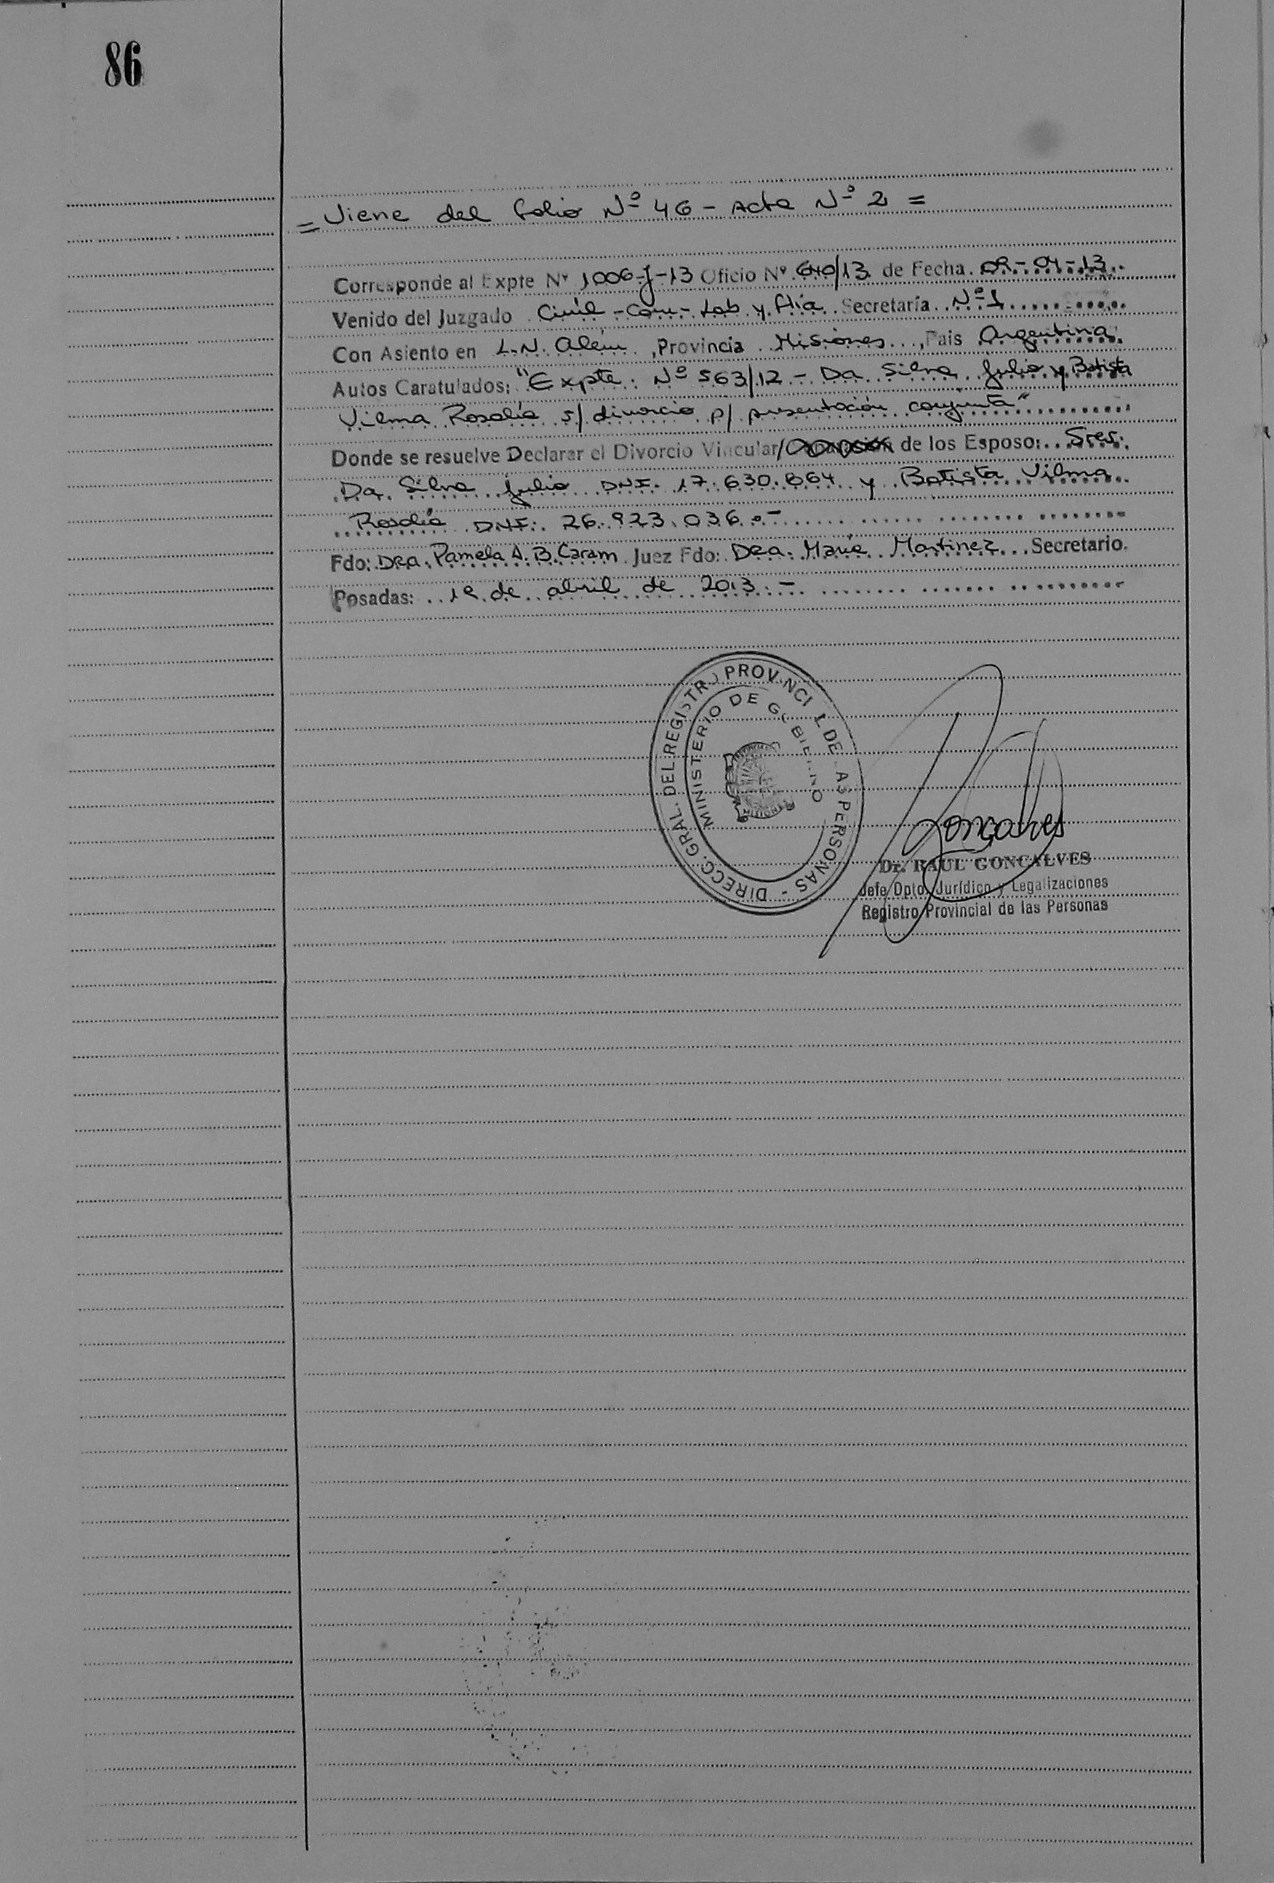 86
= Viene del folio Nº 46 - Acta Nº 2 =
Corresponde al Expte Nº 1006-J-13 Oficio Nº 640/13 de Fecha 09-04-13
Venido del Juzgado Civil - Com - Lab y flia Secretaría Nº 1
Con Asiento en L.N. Alem, Provincia Misiones, País Argentina
Autos Caratulados: "Expte. Nº 563/12 - Da Silva Julio y Batista
Vilma Rosalía s/ divorcio p/ presentación conjunta"
Donde se resuelve Declarar el Divorcio Vincular/ de los Esposo: Sres.
Da Silva Julio DNI. 17.630.664 y Batista Vilma
Rosalía DNI. 26.923.036.-
Fdo: Dra. Pamela A. B. Caram Juez Fdo: Dra. María Martinez Secretario.
Posadas: de abril de 2013.-
DIRECC. GRAL. DEL REGISTRO PROVINCIAL DE LAS PERSONAS -
MINISTERIO DE GOBIERNO
Goncalves
Dr. RAUL GONCALVES
Jefe Dpto. Jurídico y Legalizaciones
Registro Provincial de las Personas